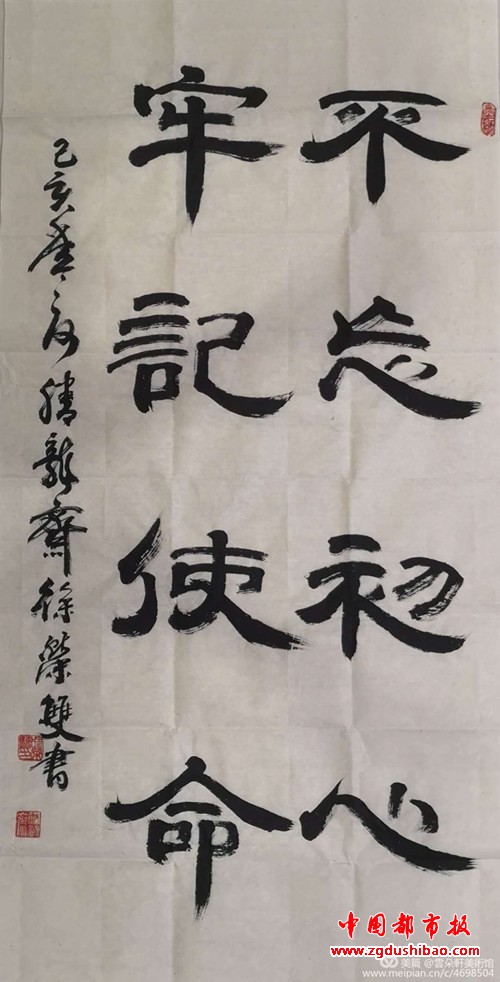 不忘初心
牢記使命
己亥夏月腾龍齋徐榮雙書
中国都市报
www.zgdushibao.com
美篇 @雲朵軒美術馆
www.meipian.cn/c/4698504